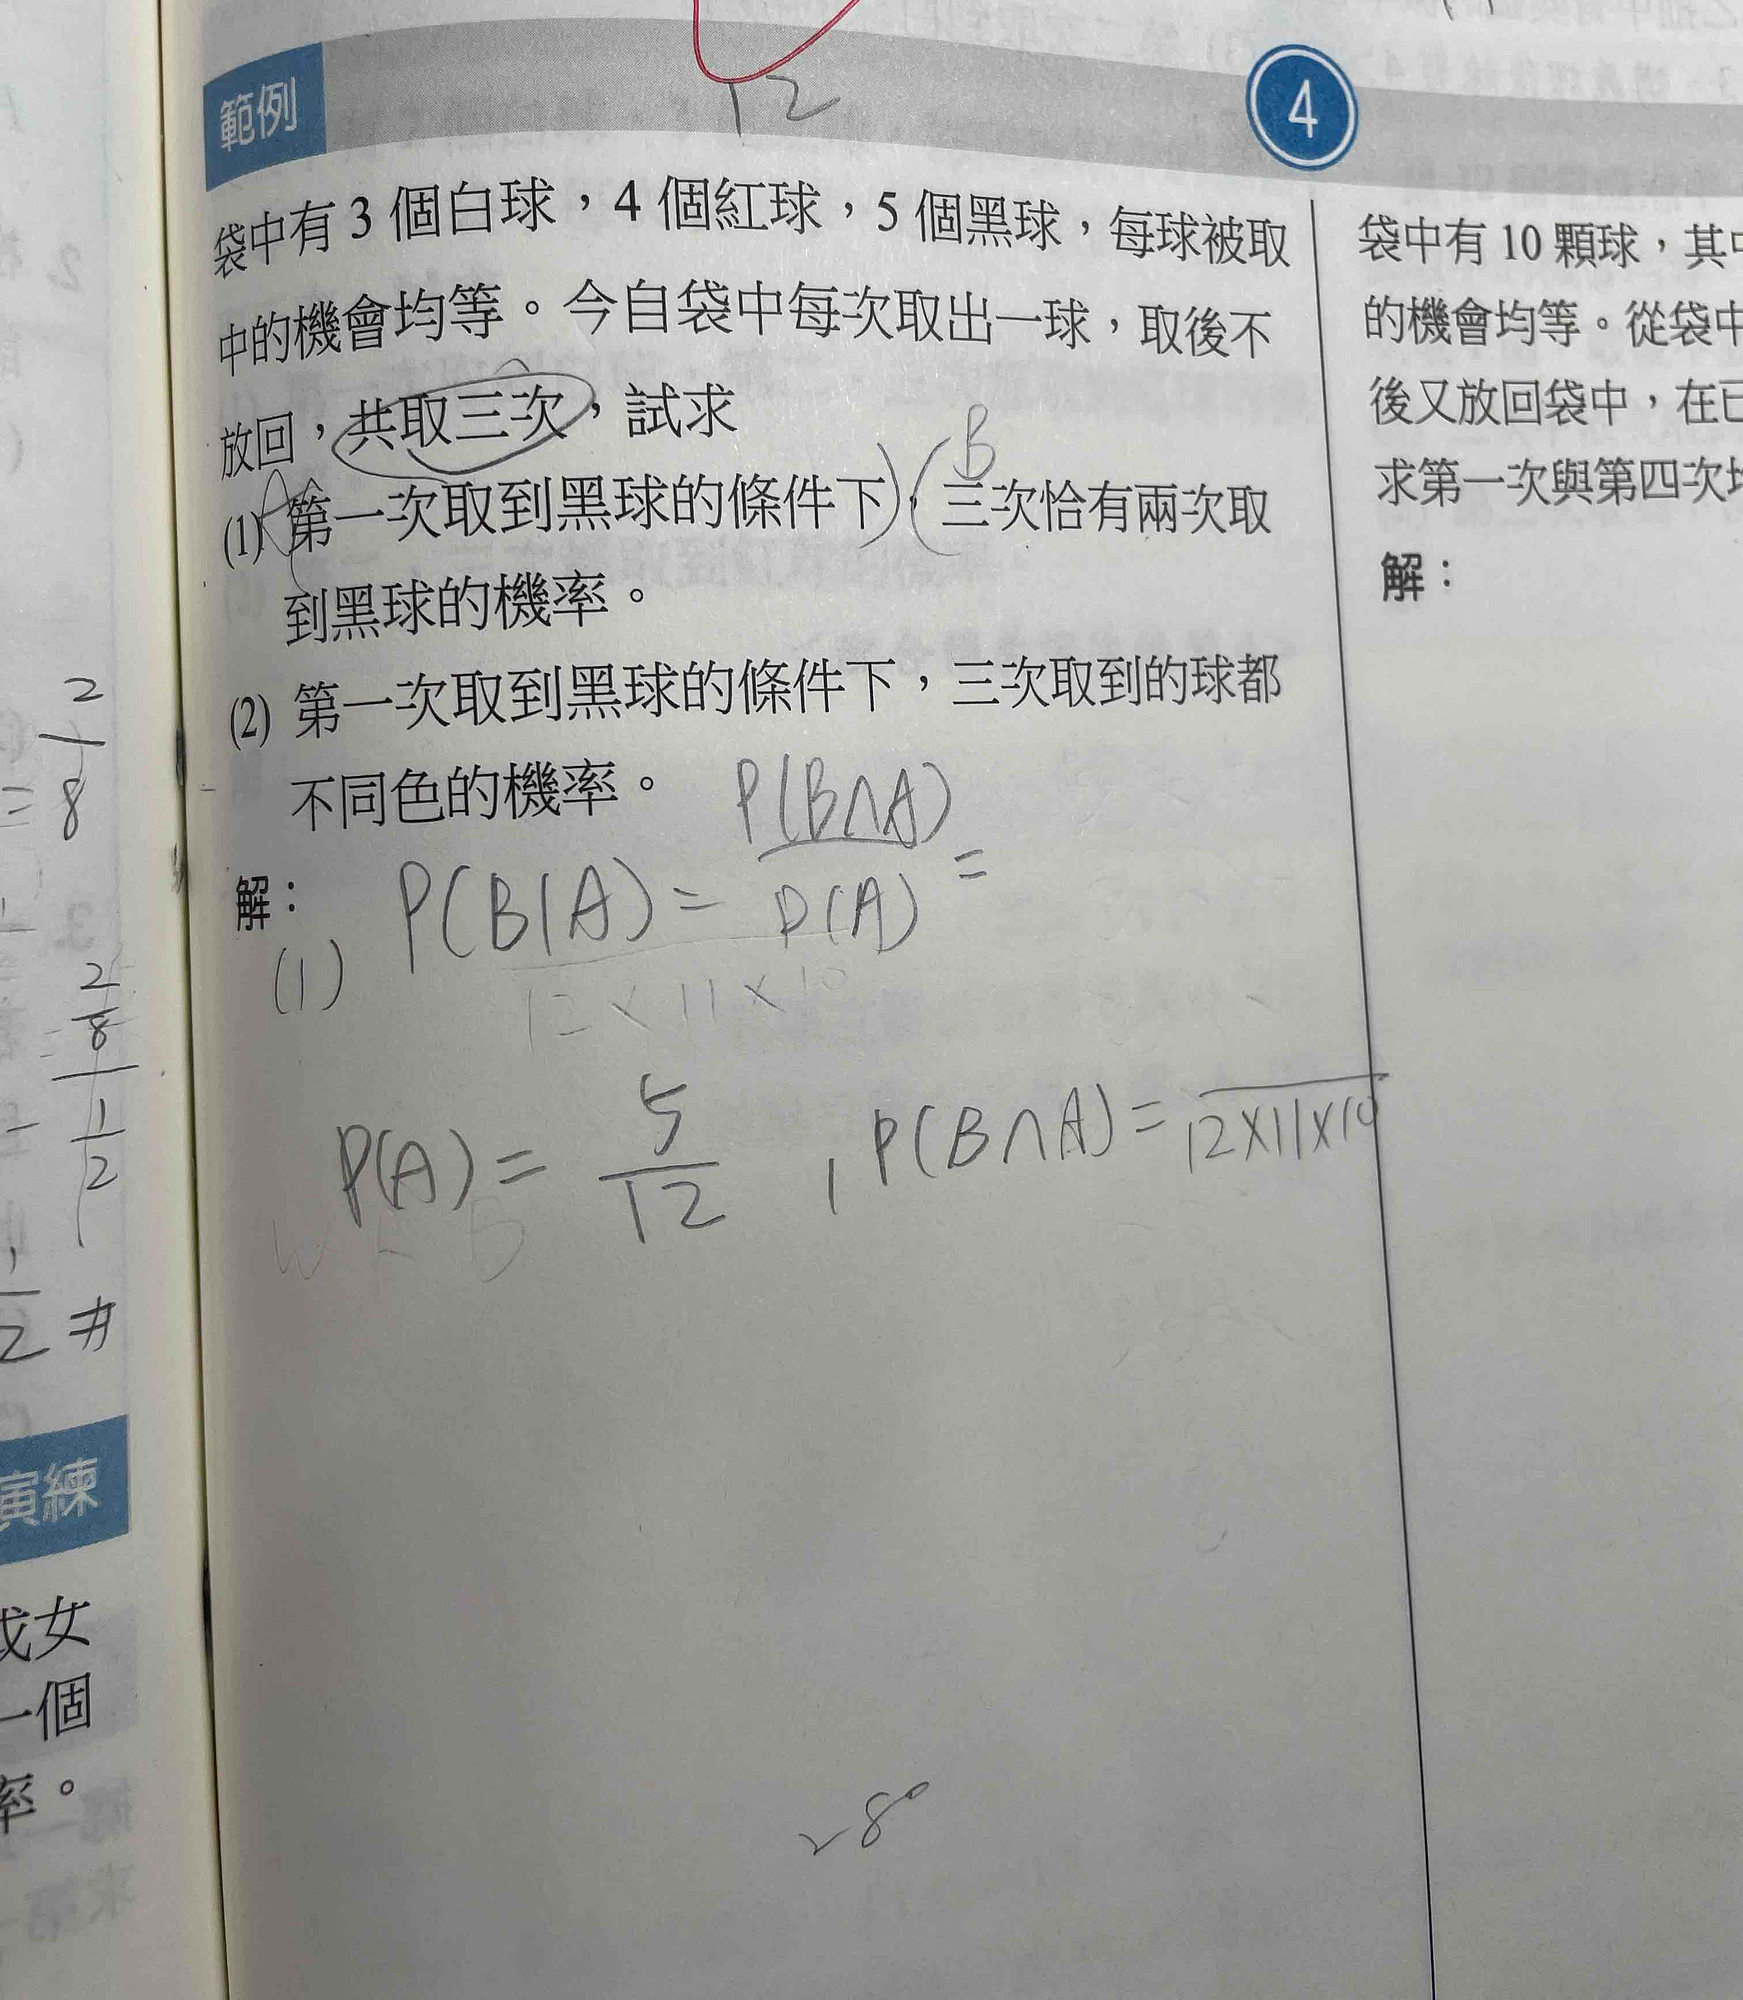 12
範例
4
袋中有 3 個白球，4 個紅球，5 個黑球，每球被取
中的機會均等。今自袋中每次取出一球，取後不
放回，共取三次，試求
A B
(1) (第一次取到黑球的條件下)，(三次恰有兩次取
到黑球的機率。
(2) 第一次取到黑球的條件下，三次取到的球都
不同色的機率。
解：
(1) P(B|A) = P(B∩A) / P(A) =
12 × 11 × 10
P(A) = 5/12 , P(B∩A) = /12×11×10
28°
袋中有 10 顆球，其中
的機會均等。從袋中
後又放回袋中，在已
求第一次與第四次均
解：
2
8
2
8
1
2
1
2 #
演練
或女
一個
率。